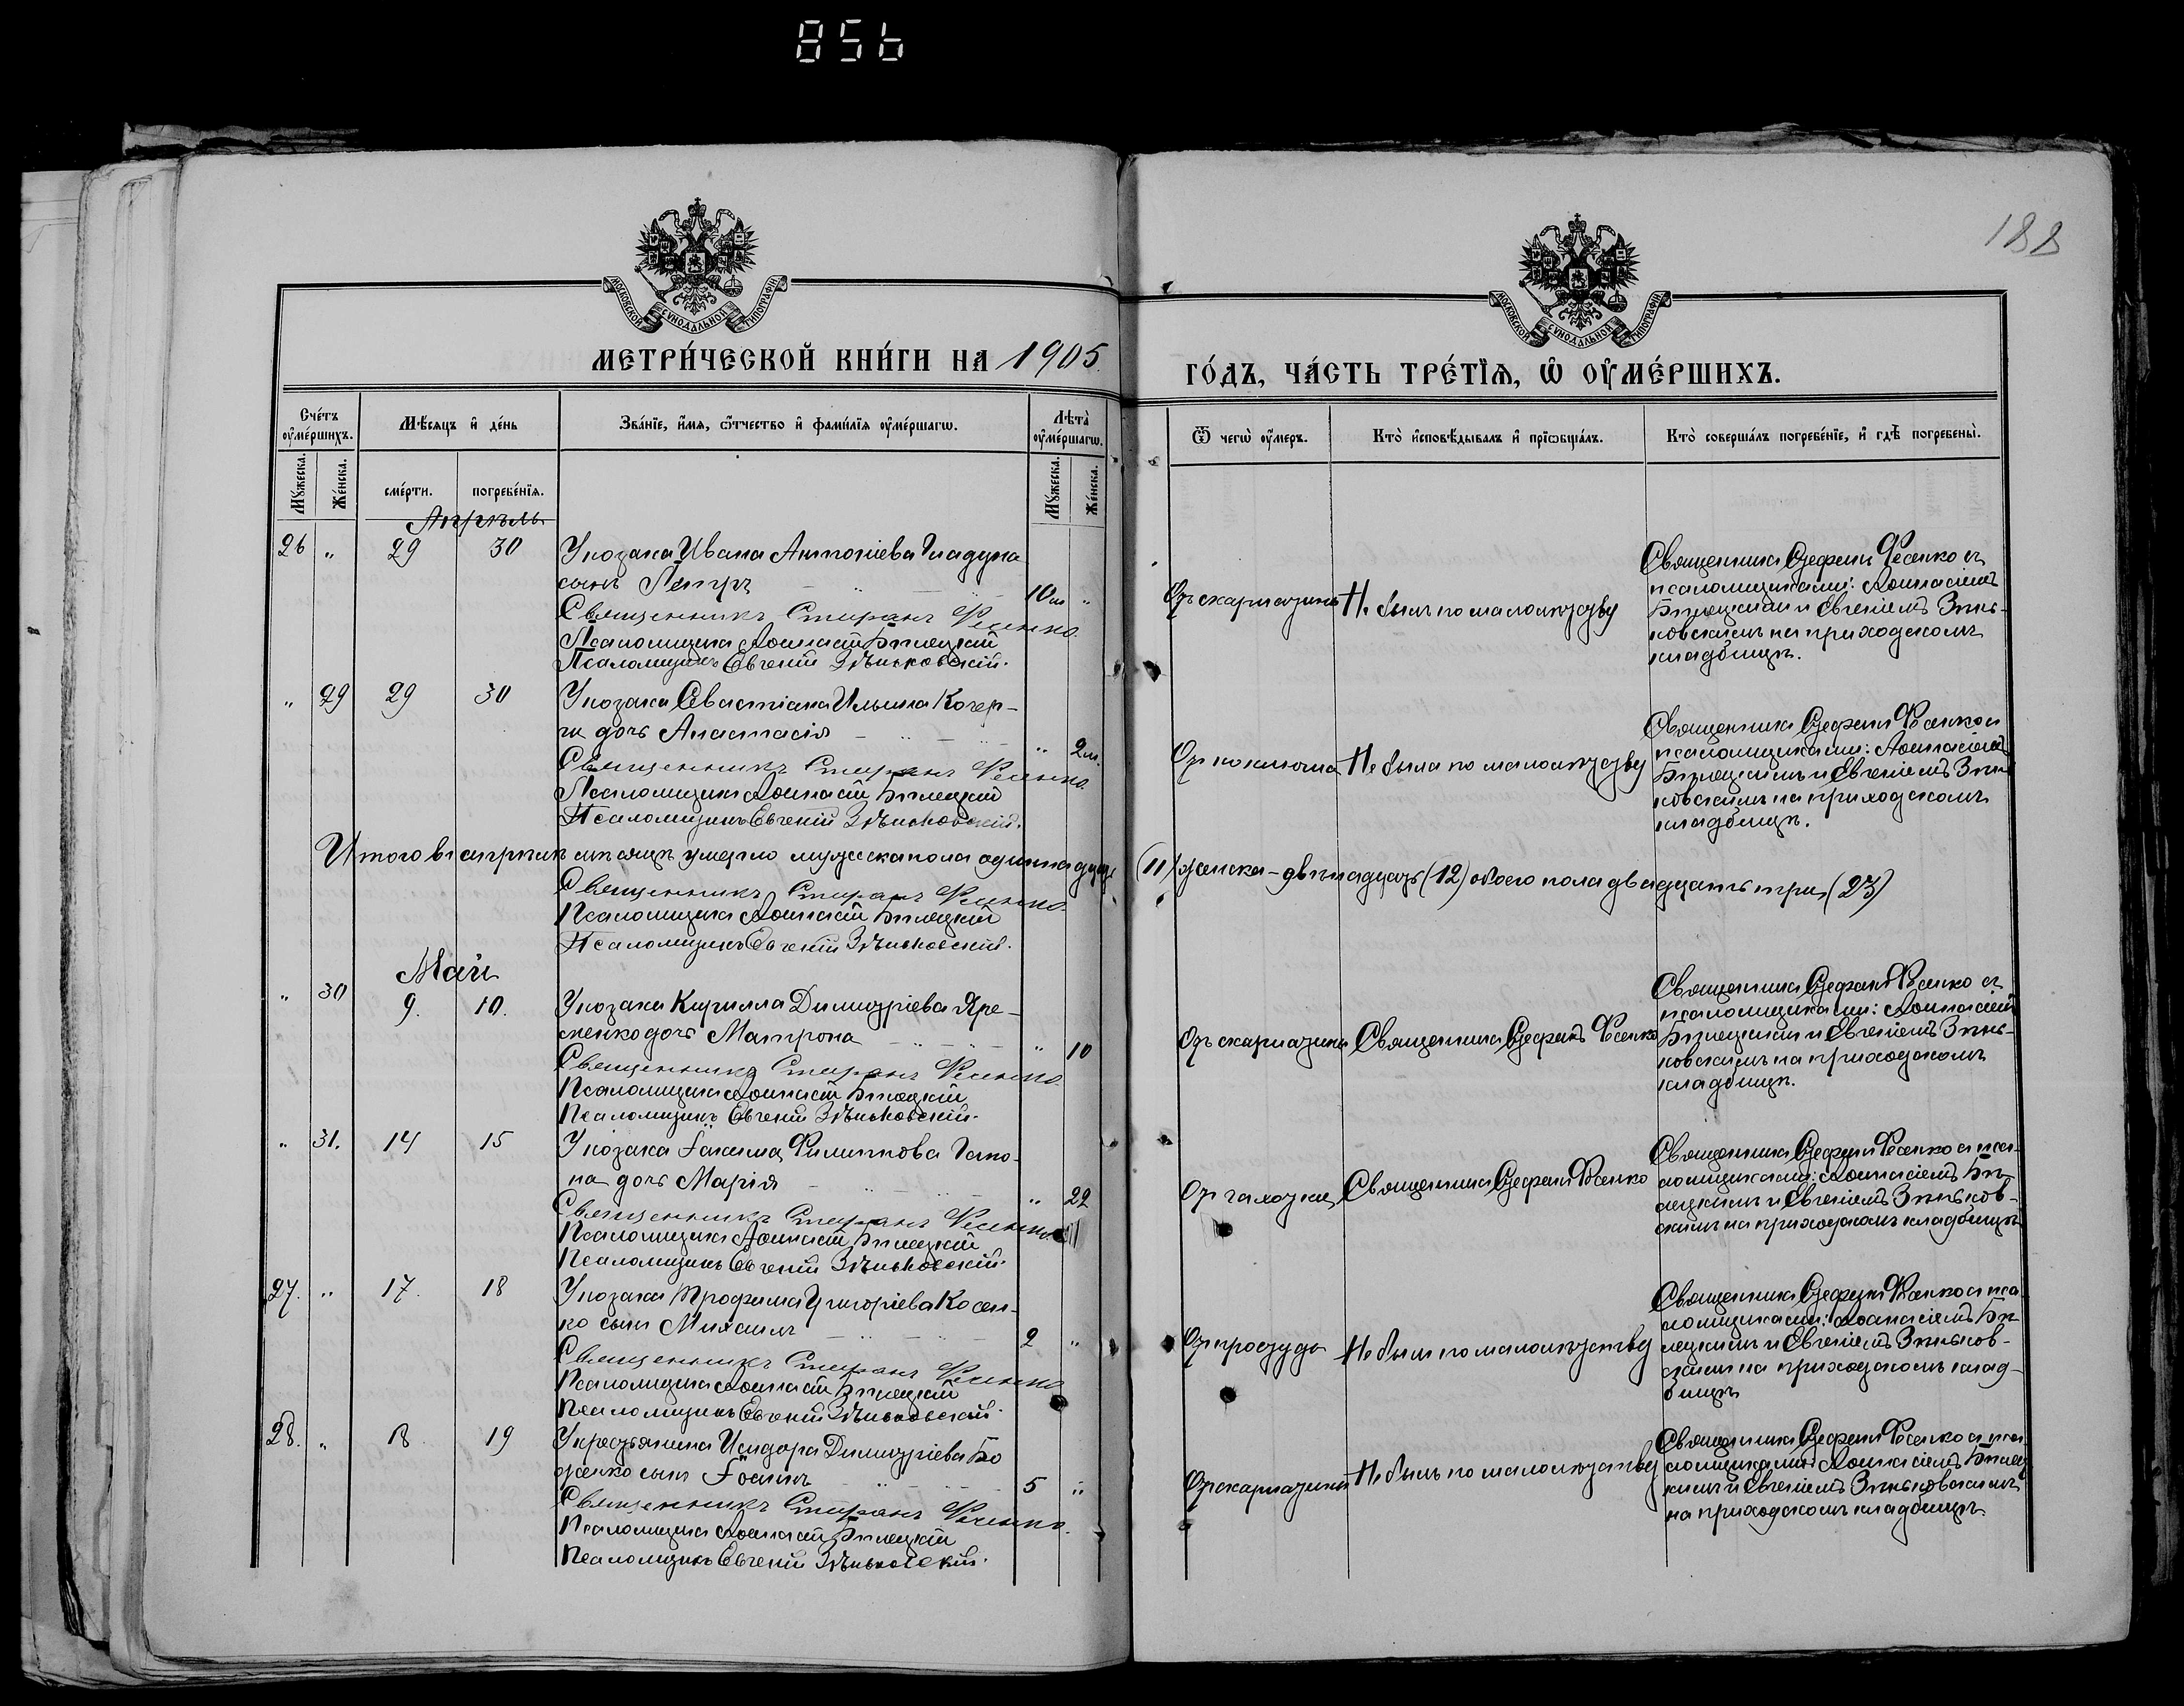 856
188
МОСКОВСКОЙ СѴНОДАЛЬНОЙ ТИПОГРАФІИ
МОСКОВСКОЙ СѴНОДАЛЬНОЙ ТИПОГРАФІИ
МЕТРИ́ЧЕСКОЙ КНИ́ГИ НА 1905
ГО́ДЪ, ЧА́СТЬ ТРЕ́ТЇѦ, Ѡ ОУ҆МЕ́РШИХЪ.
Сче́тъ оу҆ме́ршихъ.
Мꙋ́жеска.
Же́нска.
Мѣ́сяцъ и҆ де́нь
сме́рти.
погребе́нїя.
Зва́нїе, и҆́мя, ѻ҆́тчество и҆ фами́лїя оу҆ме́ршагѡ.
Лѣ́та оу҆ме́ршагѡ.
Мꙋ́жеска.
Же́нска.
Ѿ чегѡ̀ оу҆́меръ.
Кто̀ и҆сповѣ́дывалъ и҆ прїѡбща́лъ.
Кто̀ соверша́лъ погребе́нїе, и҆ гдѣ̀ погребены̀.
Апрѣль
26 " 29 30 У козака Ивана Антоніева Гладуна
сынъ Петръ 10м "
Священникъ Стефанъ Фесенко
Псаломщикъ Аѳанасій Бѣлецкій
Псаломщикъ Евгеній Зѣньковскій.
Отъ скарлатины
Не былъ по малолѣтству
Священникъ Стефанъ Фесенко съ
псаломщиками: Аѳанасіемъ
Бѣлецкимъ и Евгеніемъ Зѣнь-
ковскимъ на приходскомъ
кладбищѣ.
" 29 29 30 У козака Севастіана Ильина Кочер-
ги дочь Анастасія " 2м.
Священникъ Стефанъ Фесенко
Псаломщикъ Аѳанасій Бѣлецкій
Псаломщикъ Евгеній Зѣньковскій.
От коклюша
Не была по малолѣтству
Священникъ Стефанъ Фесенко съ
псаломщиками: Аѳанасіемъ
Бѣлецкимъ и Евгеніемъ Зѣнь
ковскимъ на приходскомъ
кладбищѣ.
Итого въ апрѣлѣ мѣсяцѣ умерло мужеска пола одиннадцать (11) женска – двѣнадцать (12) обоего пола двадцать три (23)
Священникъ Стефанъ Фесенко
Псаломщикъ Аѳанасій Бѣлецкій
Псаломщикъ Евгеній Зѣньковскій.
Май
" 30 9. 10. У козака Кирилла Димитріева Яре-
менко дочь Матрона " 10
Священникъ Стефанъ Фесенко
Псаломщикъ Аѳанасій Бѣлецкій
Псаломщикъ Евгеній Зѣньковскій.
Отъ скарлатины
Священникъ Стефанъ Фесенко
Священникъ Стефанъ Фесенко съ
псаломщиками: Аѳанасіемъ
Бѣлецкимъ и Евгеніемъ Зѣнь-
ковскимъ на приходскомъ
кладбищѣ.
" 31. 14 15 У козака Іакима Филиппова
на дочь Марія " 22
Священникъ Стефанъ Фесенко
Псаломщикъ Аѳанасій Бѣлецкій
Псаломщикъ Евгеній Зѣньковскій.
От чахотки
Священникъ Стефанъ Фесенко
Священникъ Стефанъ Фесенко съ пса-
ломщиками: Аѳанасіемъ Бѣ-
лецкимъ и Евгеніемъ Зѣньков-
скимъ на приходскомъ кладбищѣ
27. " 17. 18 У козака Трофима Григоріева Косен-
ко сынъ Михаилъ 2 "
Священникъ Стефанъ Фесенко
Псаломщикъ Аѳанасій Бѣлецкій
Псаломщикъ Евгеній Зѣньковскій.
От простуды
Не былъ по малолѣтству
Священникъ Стефанъ Фесенко съ пса
ломщиками: Аѳанасіемъ Бѣ
лецкимъ и Евгеніемъ Зѣньков-
скимъ на приходскомъ клад-
бищѣ
28. " 18 19 У крестьянина Исидора Димитріева Бо
женко сынъ Іоаннъ 5 "
Священникъ Стефанъ Фесенко
Псаломщикъ Аѳанасій Бѣлецкій
Псаломщикъ Евгеній Зѣньковскій.
От скарлатины
Не былъ по малолѣтству
Священникъ Стефанъ Фесенко съ пса
ломщиками: Аѳанасіемъ Бѣлец
кимъ и Евгеніемъ Зѣньковскимъ
на приходскомъ кладбищѣ.